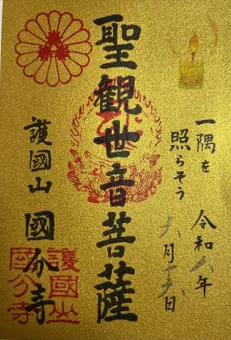 一隅を
照らそう
令和六年
六月 日
聖観世音菩薩
護國山
國分寺
護國山
國分寺